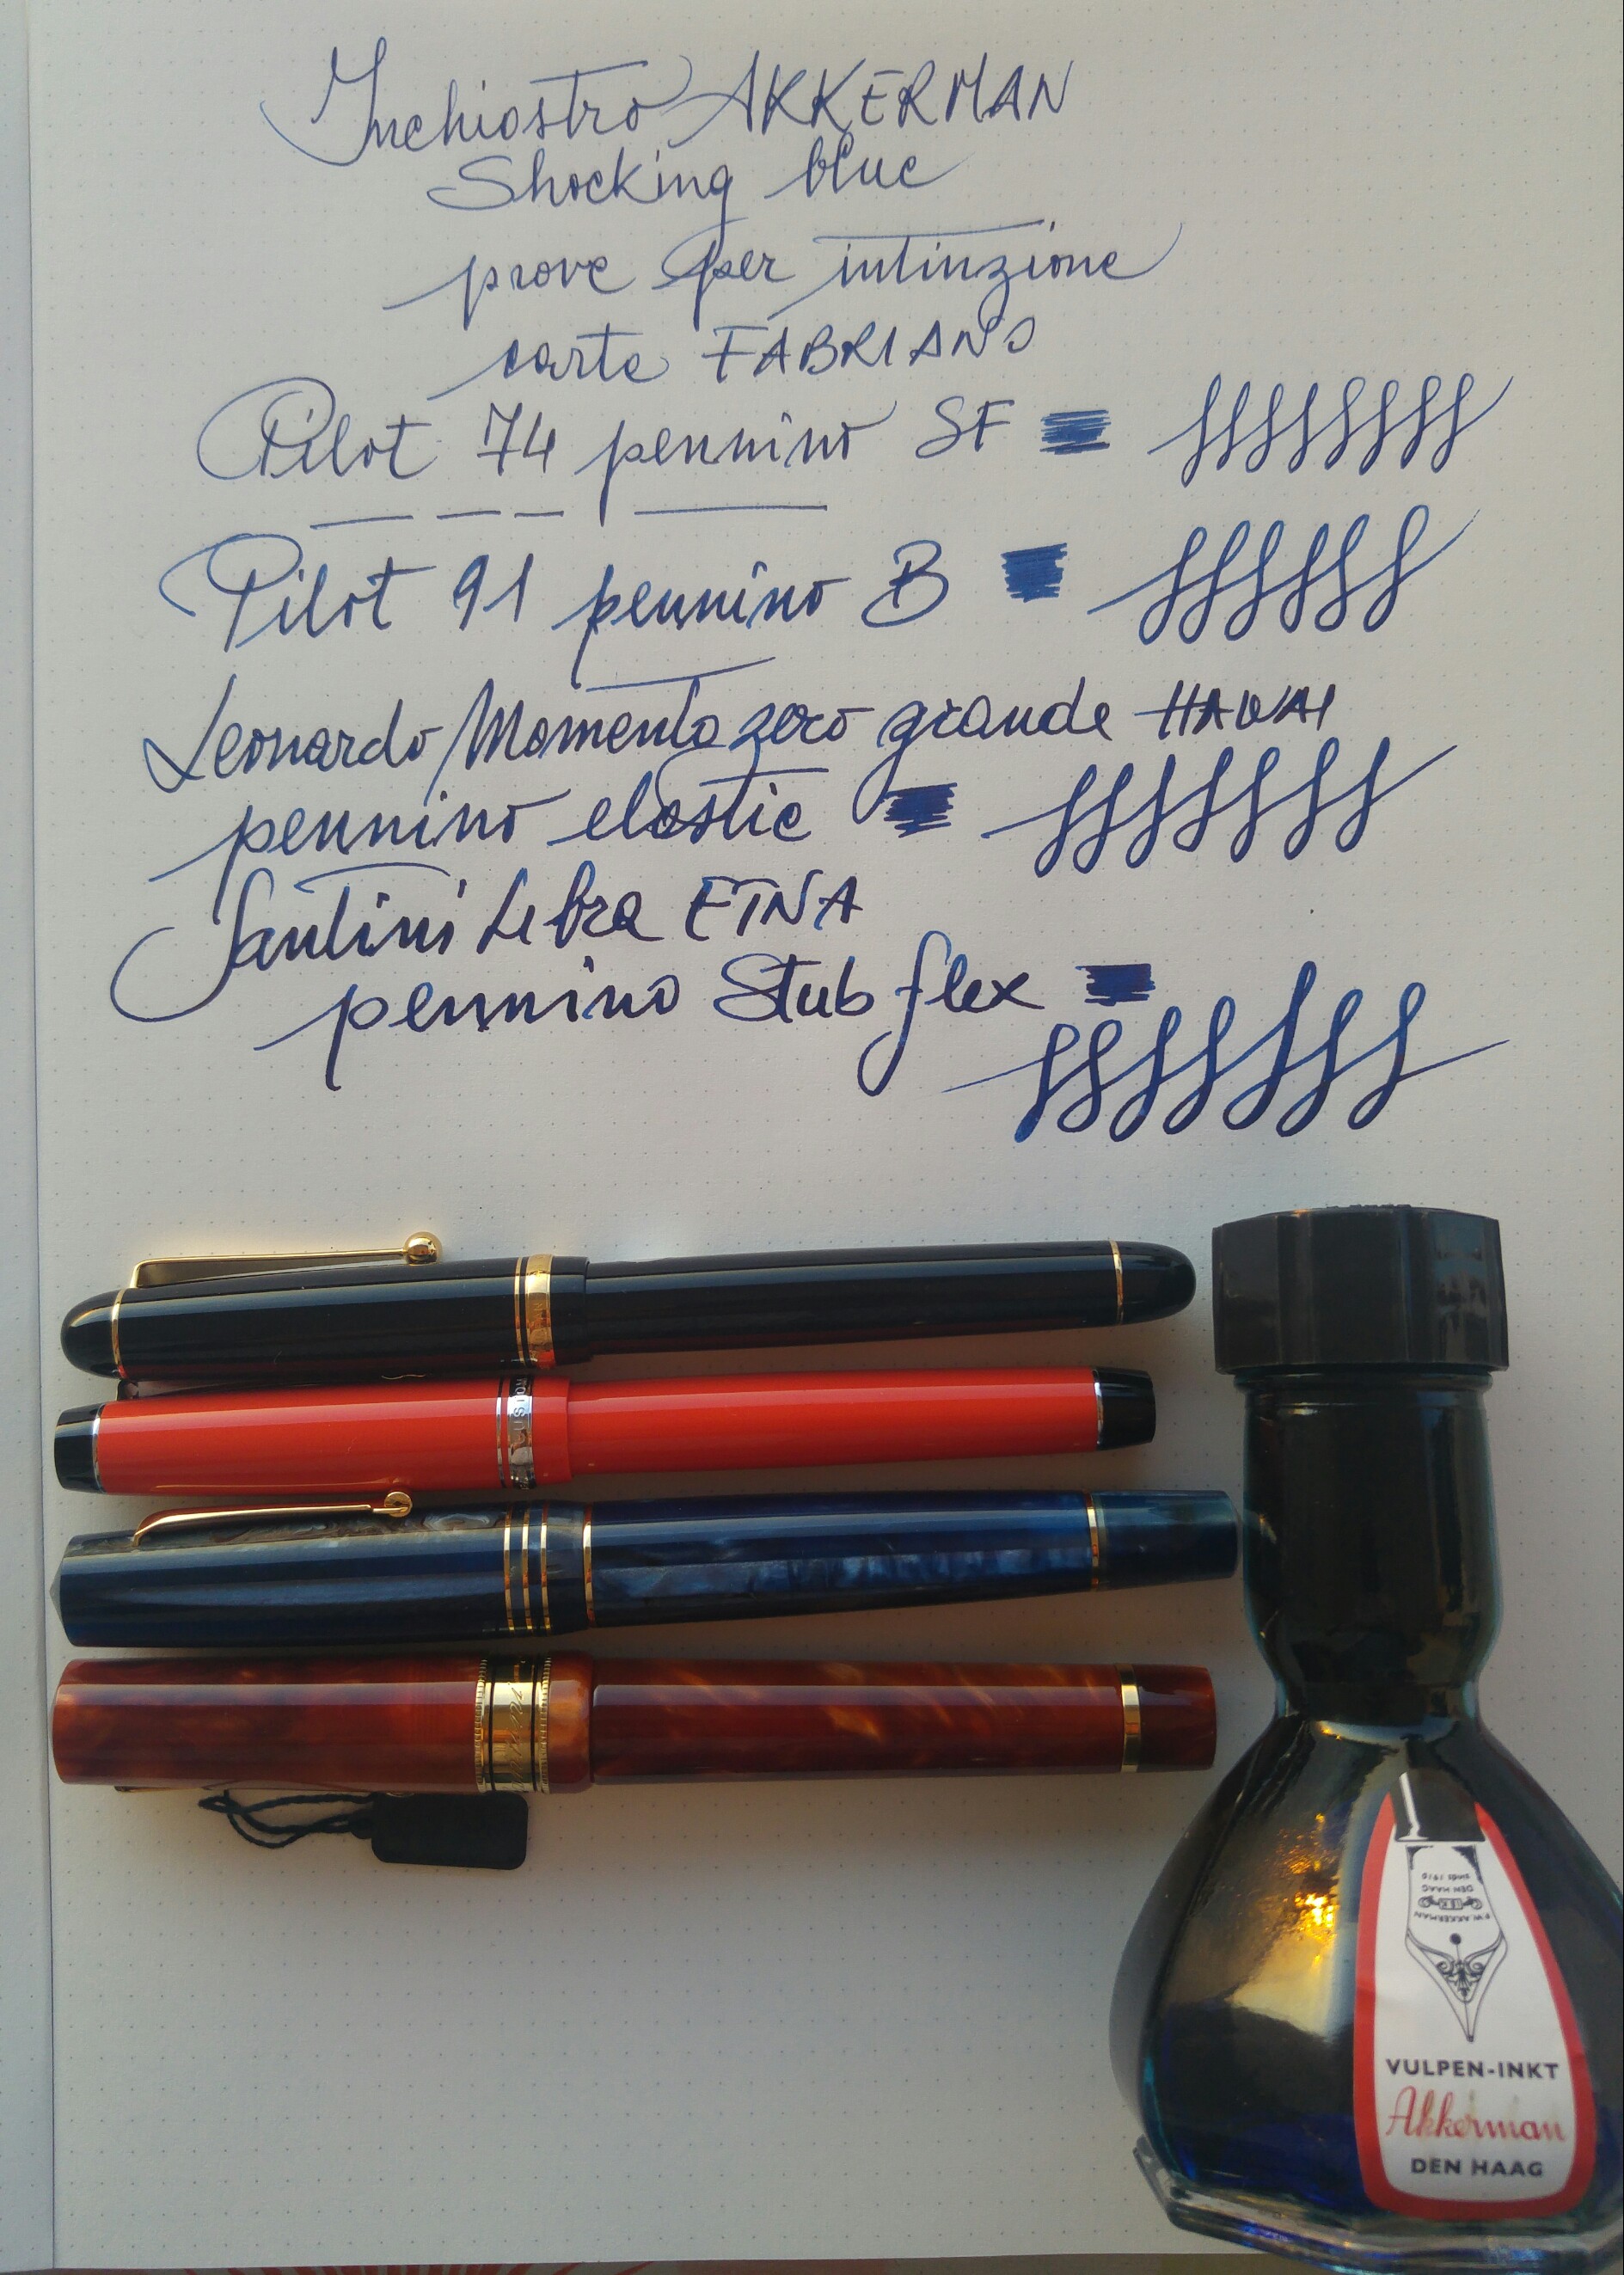 Inchiostro AKKERMAN
Shocking blue
prove per intinzione
carta FABRIANO
Pilot 74 pennino SF
Pilot 91 pennino B
Leonardo Momento zero grande HAWAI
pennino elastic
Santini Libra ETNA
pennino Stub flex
SINDS 1910
DEN HAAG
P.W. AKKERMAN
VULPEN-INKT
Akkerman
DEN HAAG